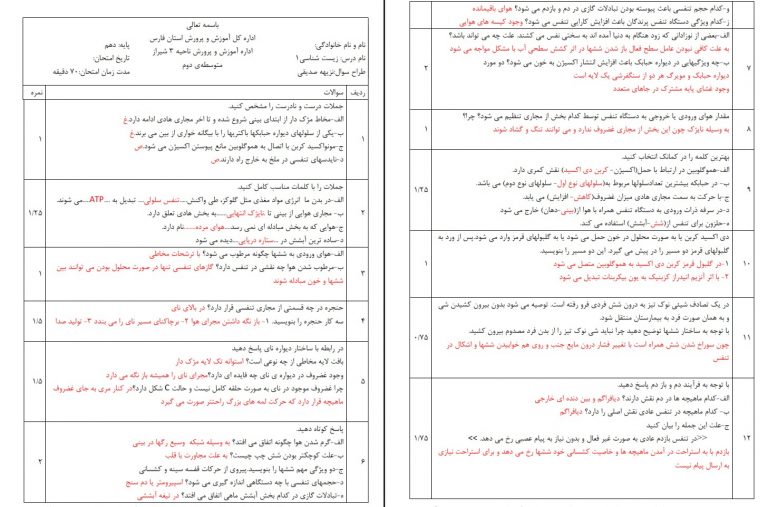 باسمه تعالی
اداره کل آموزش و پرورش استان فارس
اداره آموزش و پرورش ناحیه ۳ شیراز
متوسطه‌ی دوم
نام و نام خانوادگی:
نام درس: زیست شناسی۱
طراح سوال:نزیهه صدیقی
پایه: دهم
تاریخ امتحان:
مدت زمان امتحان:۷۰ دقیقه
ردیف سوالات نمره
جملات درست و نادرست را مشخص کنید.
الف-مخاط مژک دار از ابتدای بینی شروع شده و تا اخر مجاری هادی ادامه دارد.غ
ب-یکی از سلولهای دیواره حبابکها باکتریها را با بیگانه خواری از بین می برند.غ
ج-مونواکسید کربن با اتصال به هموگلوبین مانع پیوستن اکسیژن می شود.ص
د-نایدسهای تنفسی در ملخ به خارج راه دارند.ص
۱
۱
جملات را با کلمات مناسب کامل کنید.
الف-در بدن ما انرژی مواد مغذی مثل گلوکز، طی واکنش....تنفس سلولی... تبدیل به ...ATP....می شوند.
ب- مجاری هوایی از بینی تا نایژک انتهایی.......به بخش هادی تعلق دارد.
ج-هوایی که به بخش مبادله ای نمی رسد...هوای مرده.......نام دارد.
د-ساده ترین آبشش در ...ستاره دریایی...دیده می شود
۲
۱/۲۵
الف-هوای ورودی به ششها چگونه مرطوب می شود؟ با ترشحات مخاطی
ب-مرطوب شدن هوا چه نقشی در تنفس دارد؟ گازهای تنفسی تنها در صورت محلول بودن می توانند بین
ششها و خون مبادله شوند
۳
۱
حنجره در چه قسمتی از مجاری تنفسی قرار دارد؟ در بالای نای
سه کار حنجره را بنویسید. ۱- باز نگه داشتن مجرای هوا ۲- برچاکنای مسیر نای را می بندد ۳- تولید صدا
۴
۱/۵
در رابطه با ساختار دیواره نای پاسخ دهید
بافت لایه مخاطی از چه نوعی است؟ استوانه تک لایه مژک دار
وجود غضروف در دیواره ی نای چه فایده ای دارد؟مجرای نای را همیشه باز نگه می دارد
چرا غضروف موجود در نای به صورت حلقه کامل نیست و حالت C شکل دارد؟در کنار مری به جای غضروف
ماهیچه قرار دارد که حرکت لمه های بزرگ راحتتر صورت می گیرد
۵
۱/۵
پاسخ کوتاه دهید.
الف-گرم شدن هوا چگونه اتفاق می افتد؟ به وسیله شبکه وسیع رگها در بینی
ب-علت کوچکتر بودن شش چپ چیست؟ به علت مجاورت با قلب
ج-دو ویژگی مهم ششها را بنویسید.پیروی از حرکات قفسه سینه و کشسانی
د-حجمهای تنفسی با چه دستگاهی اندازه گیری می شود؟ اسپیرومتر یا دم سنج
ه-تبادلات گازی در کدام بخش آبشش ماهی اتفاق می افتد؟ در تیغه آبششی
۶
۲
و-کدام حجم تنفسی باعث پیوسته بودن تبادلات گازی در دم و بازدم می شود؟ هوای باقیمانده
ز-کدام ویژگی دستگاه تنفس پرندگان باعث افزایش کارایی تنفس می شود؟ وجود کیسه های هوایی
الف-بعضی از نوزادانی که زود هنگام به دنیا آمده اند به سختی نفس می کشند. علت چه می تواند باشد؟
به علت کافی نبودن عامل سطح فعال باز شدن ششها در اثر کشش سطحی آب با مشکل مواجه می شود
ب-چه ویژگیهایی در دیواره حبابک باعث افزایش انتشار اکسیژن به خون می شود؟ دو مورد
دیواره حبابک و مویرگ هر دو از سنگفرشی یک لایه است
وجود غشای پایه مشترک در جاهای متعدد
۷
۲
مقدار هوای ورودی یا خروجی به دستگاه تنفس توسط کدام بخش از مجاری تنظیم می شود؟ چرا؟
به وسیله نایژک چون این بخش از مجاری غضروف ندارد و می توانند تنگ و گشاد شوند
۸
۱
بهترین کلمه را در کمانک انتخاب کنید.
الف-هموگلوبین در ارتباط با حمل(اکسیژن- کربن دی اکسید) نقش کمتری دارد.
ب- در حبابکه بیشترین تعدادسلولها مربوط به(سلولهای نوع اول- سلولهای نوع دوم) می باشد.
ج-با حرکت به سمت مجاری هادی میزان غضروف(کاهش- افزایش) می یابد.
د-در سرفه ذرات ورودی به دستگاه تنفس همراه با هوا از(بینی-دهان) خارج می شود
ه-حلزون برای تنفس از(شش-آبشش) استفاده می کند.
۹
۱/۲۵
دی اکسید کربن یا به صورت محلول در خون حمل می شود یا به گلبولهای قرمز وارد می شود.پس از ورد به
گلبولهای قرمز دو مسیر را در پیش می گیرد. این دو مسیر را بنویسید.
۱-در گلبول قرمز کربن دی اکسید به هموگلوبین متصل می شود
۲- با اثر آنزیم انیدراز کربنیک به یون بیکربنات تبدیل می شود
۱۰
۱
در یک تصادف شیئی نوک تیز به درون شش فردی فرو رفته است. توصیه می شود بدون بیرون کشیدن شی
و به همان صورت فرد به بیمارستان منتقل شود.
با توجه به ساختار ششها توضیح دهید چرا نباید شی نوک تیز را از بدن فرد مصدوم بیرون کشید.
چون سوراخ شدن شش همراه است با تغییر فشار درون مایع جنب و روی هم خوابیدن ششها و اشکال در
تنفس
۱۱
۰/۷۵
با توجه به فرآیند دم و باز دم پاسخ دهید.
الف-کدام ماهیچه ها در دم نقش دارند؟ دیافراگم و بین دنده ای خارجی
ب- کدام ماهیچه در تنفس عادی نقش اصلی را دارد؟ دیافراگم
ج-علت این جمله را بیان کنید
<<در تنفس بازدم عادی به صورت غیر فعال و بدون نیاز به پیام عصبی رخ می دهد. >>
بازدم با به استراحت در آمدن ماهیچه ها و خاصیت کشسانی خود ششها رخ می دهد و برای استراحت نیازی
به ارسال پیام نیست
۱۲
۱/۷۵